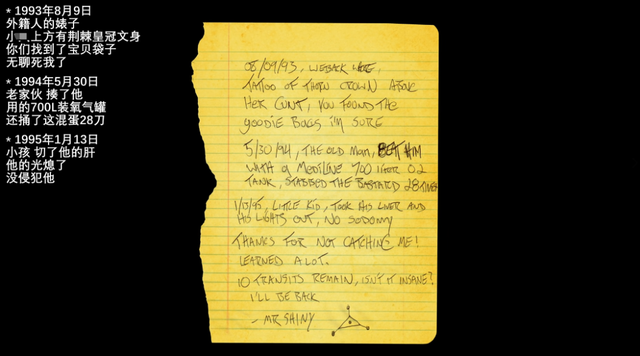 * 1993年8月9日
外籍人的婊子
小 上方有荆棘皇冠文身
你们找到了宝贝袋子
无聊死我了
* 1994年5月30日
老家伙 揍了他
用的700L装氧气罐
还捅了这混蛋28刀
* 1995年1月13日
小孩 切了他的肝
他的光熄了
没侵犯他
08/09/93, WEBACK WHORE,
TATTOO OF THORN CROWN ABOVE
HER CUNT, YOU FOUND THE
GOODIE BAGS I'M SURE
5/30/94, THE OLD MAN, BEAT HIM
WITH A MEDILINE 700 LITER O2
TANK, STABBED THE BASTARD 28 TIMES
1/13/95, LITTLE KID, TOOK HIS LIVER AND
HIS LIGHTS OUT, NO SODOMY
THANKS FOR NOT CATCHING ME!
LEARNED A LOT.
10 TRANSITS REMAIN, ISN'T IT INSANE?
I'LL BE BACK
- MR SHINY